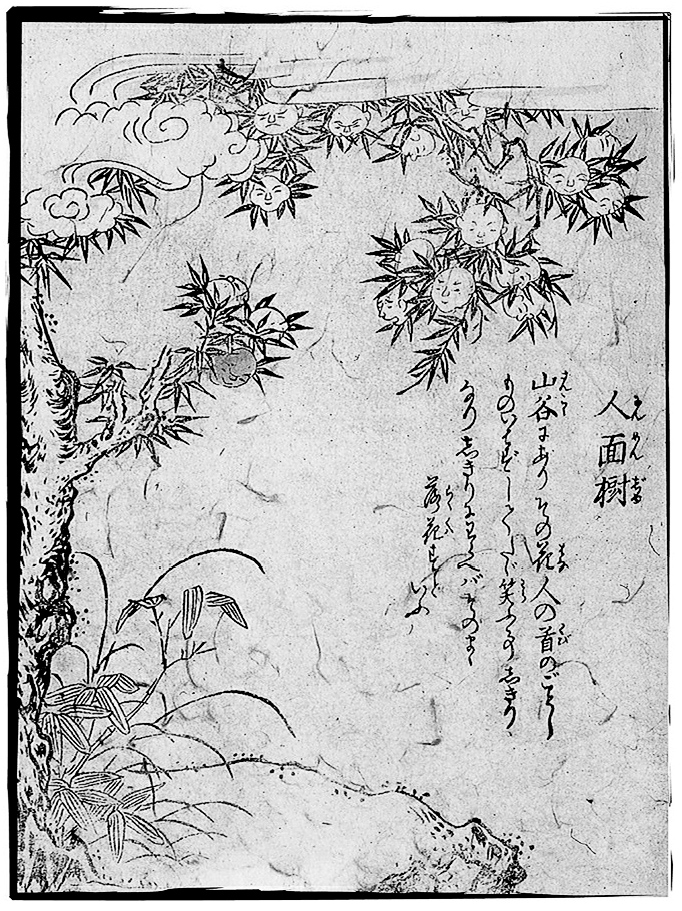 人面樹
山谷にありその花人の首のごとし
ものいはずしてたゞ笑ふ事しきり
なりしきりにわらへバそのまゝ
落花すといふ